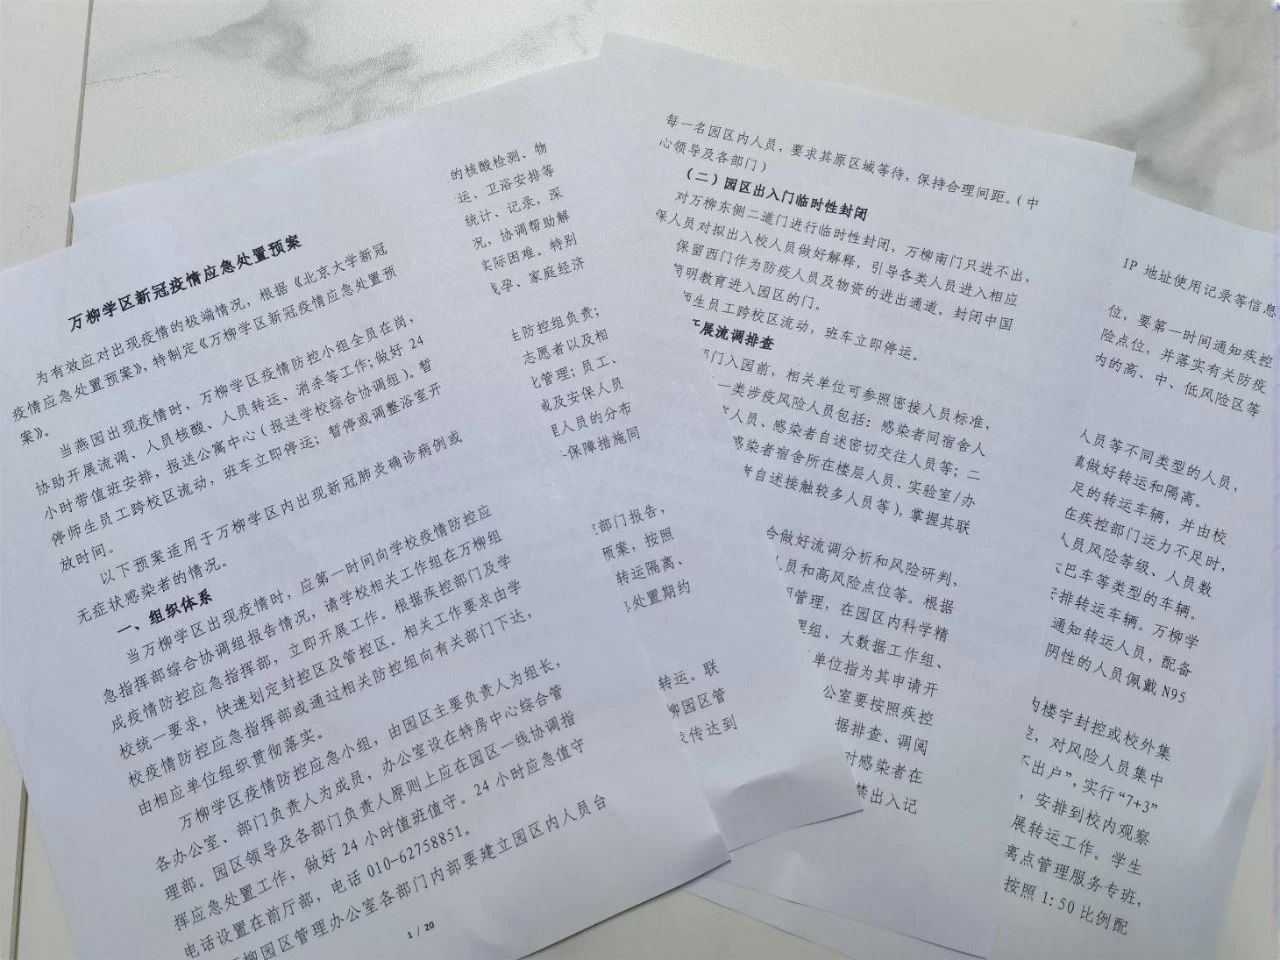 万柳学区新冠疫情应急处置预案
为有效应对出现疫情的极端情况，根据《北京大学新冠
疫情应急处置预案》，特制定《万柳学区新冠疫情应急处置预
案》。
当燕园出现疫情时，万柳学区疫情防控小组全员在岗，
协助开展流调、人员核酸、人员转运、消杀等工作；做好 24
小时带值班安排，报送公寓中心（报送学校综合协调组）。暂
停师生员工跨校区流动，班车立即停运；暂停或调整浴室开
放时间。
以下预案适用于万柳学区内出现新冠肺炎确诊病例或
无症状感染者的情况。
一、组织体系
当万柳学区出现疫情时，应第一时间向学校疫情防控应
急指挥部综合协调组报告情况，请学校相关工作组在万柳组
成疫情防控应急指挥部，立即开展工作。根据疾控部门及学
校统一要求，快速划定封控区及管控区。相关工作要求由学
校疫情防控应急指挥部或通过相关防控组向有关部门下达，
由相应单位组织贯彻落实。
万柳学区疫情防控应急小组，由园区主要负责人为组长，
各办公室、部门负责人为成员，办公室设在特房中心综合管
理部。园区领导及各部门负责人原则上应在园区一线协调指
挥应急处置工作，做好 24 小时值班值守。24 小时应急值守
电话设置在前厅部，电话 010-62758851。
柳园区管理办公室各部门内部要建立园区内人员台
1 / 20
的核酸检测、物
运、卫浴安排等
统计、记录，深
况，协调帮助解
实际困难。特别
孕、家庭经济
生防控组负责；
志愿者以及相
化管理；员工、
或及安保人员
人员的分布
保障措施同
部门报告，
预案，按照
转运隔离、
处置期约
转运。联
柳园区管
传达到
每一名园区内人员，要求其原区域等待，保持合理间距。（中
心领导及各部门）
（二）园区出入门临时性封闭
对万柳东侧二道门进行临时性封闭，万柳南门只进不出，
保人员对拟出入校人员做好解释，引导各类人员进入相应
保留西门作为防疫人员及物资的进出通道。封闭中国
简明教育进入园区的门。
师生员工跨校区流动，班车立即停运。
开展流调排查
部门入园前，相关单位可参照密接人员标准，
一类涉疫风险人员包括：感染者同宿舍人
人员、感染者自述密切交往人员等；二
感染者宿舍所在楼层人员、实验室/办
者自述接触较多人员等），掌握其联
合做好流调分析和风险研判，
人员和高风险点位等。根据
管理，在园区内科学精
理组、大数据工作组、
单位指为其申请开
公室要按照疾控
据排查、调阅
对感染者在
禁出入记
IP 地址使用记录等信息
位，要第一时间通知疾控
险点位，并落实有关防疫
内的高、中、低风险区等
人员等不同类型的人员，
真做好转运和隔离。
足的转运车辆，并由校
在疾控部门运力不足时，
人员风险等级、人员数
大巴车等类型的车辆。
安排转运车辆。万柳学
通知转运人员，配备
阴性的人员佩戴 N95
内楼宇封控或校外集
，对风险人员集中
不出户”，实行“7+3”
，安排到校内观察
展转运工作。学生
离点管理服务专班，
按照 1:50 比例配